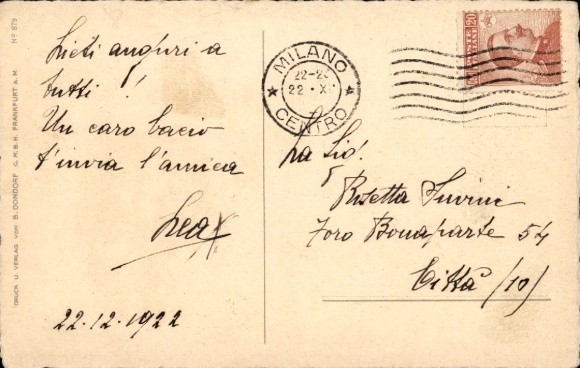 Lieti auguri a
tutti !
Un caro bacio
t'invia l'amica
Lea
22.12.1922
Rosetta Suvini
Foro Bonaparte 54
Città (10)
MILANO
CENTRO
22-2
22 · XI
20
No 879
DRUCK U. VERLAG VON B. DONDORF G.M.B.H. FRANKFURT A.M.